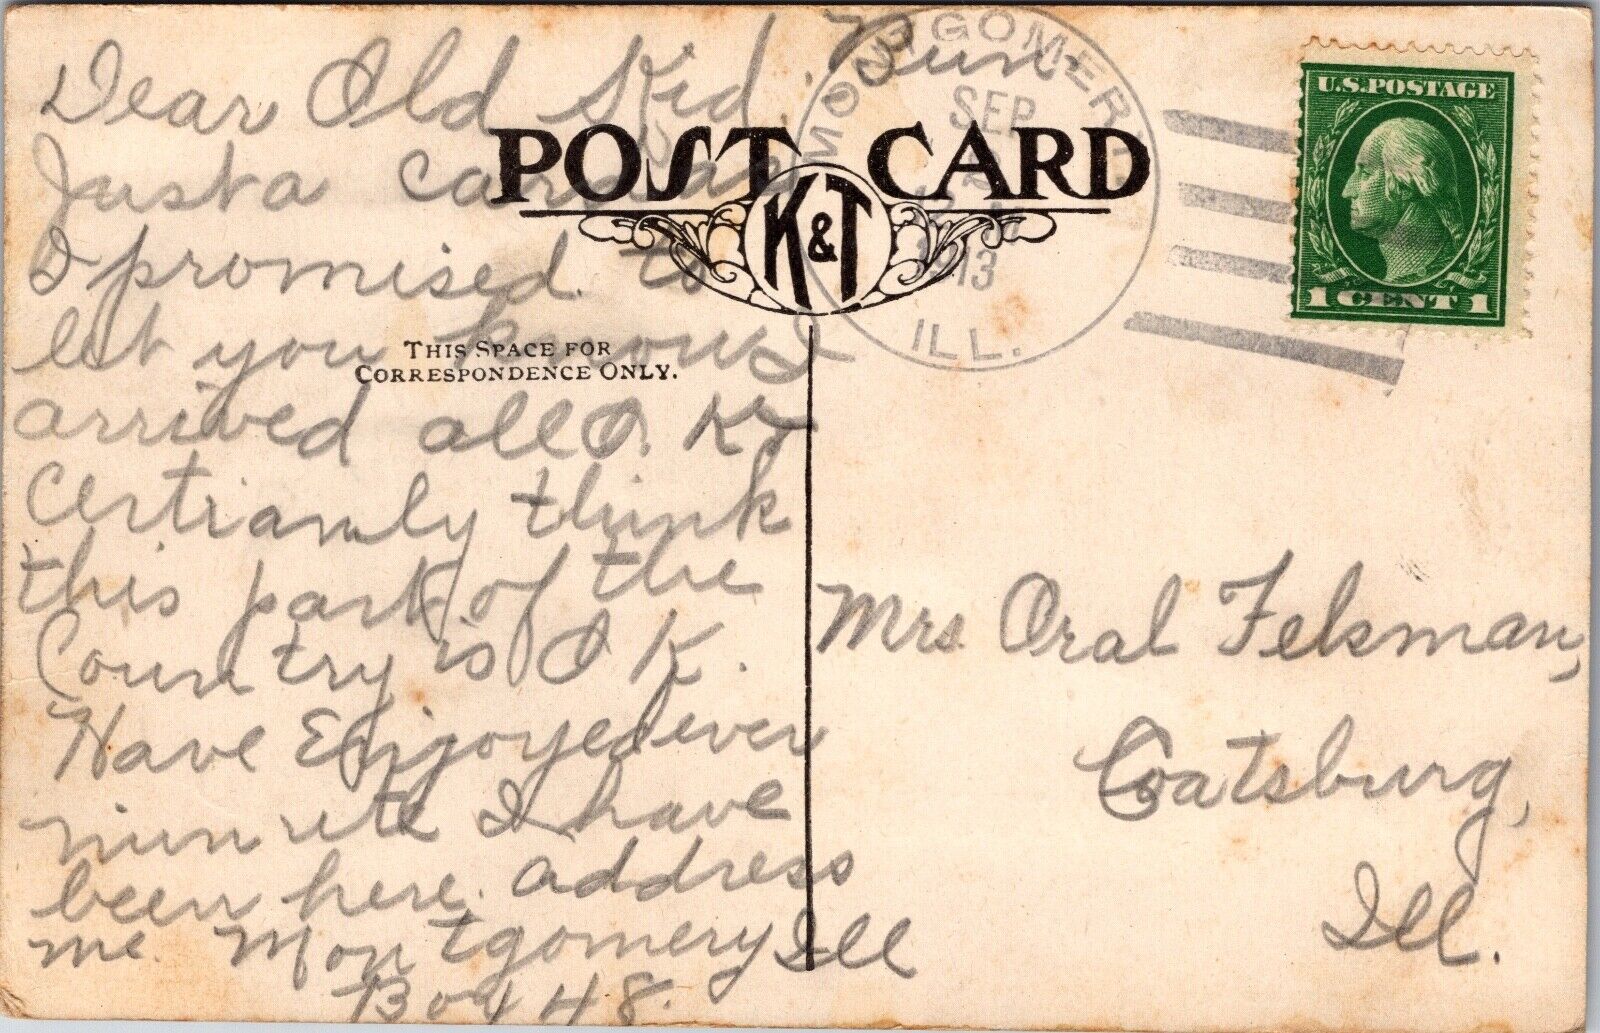 Dear Old Kid.
Just a card as
I promised to
let you know I
arrived all O. K. I
certianly think
this part of the
Country is O K.
Have Enjoyed ever
minuete I have
been here. address
me. Montgomery Ill
Box 48.
POST CARD
K&T
THIS SPACE FOR
CORRESPONDENCE ONLY.
MONTGOMERY
SEP
1913
ILL.
U.S. POSTAGE
1 CENT 1
Mrs. Oral Felsman,
Coatsburg,
Ill.